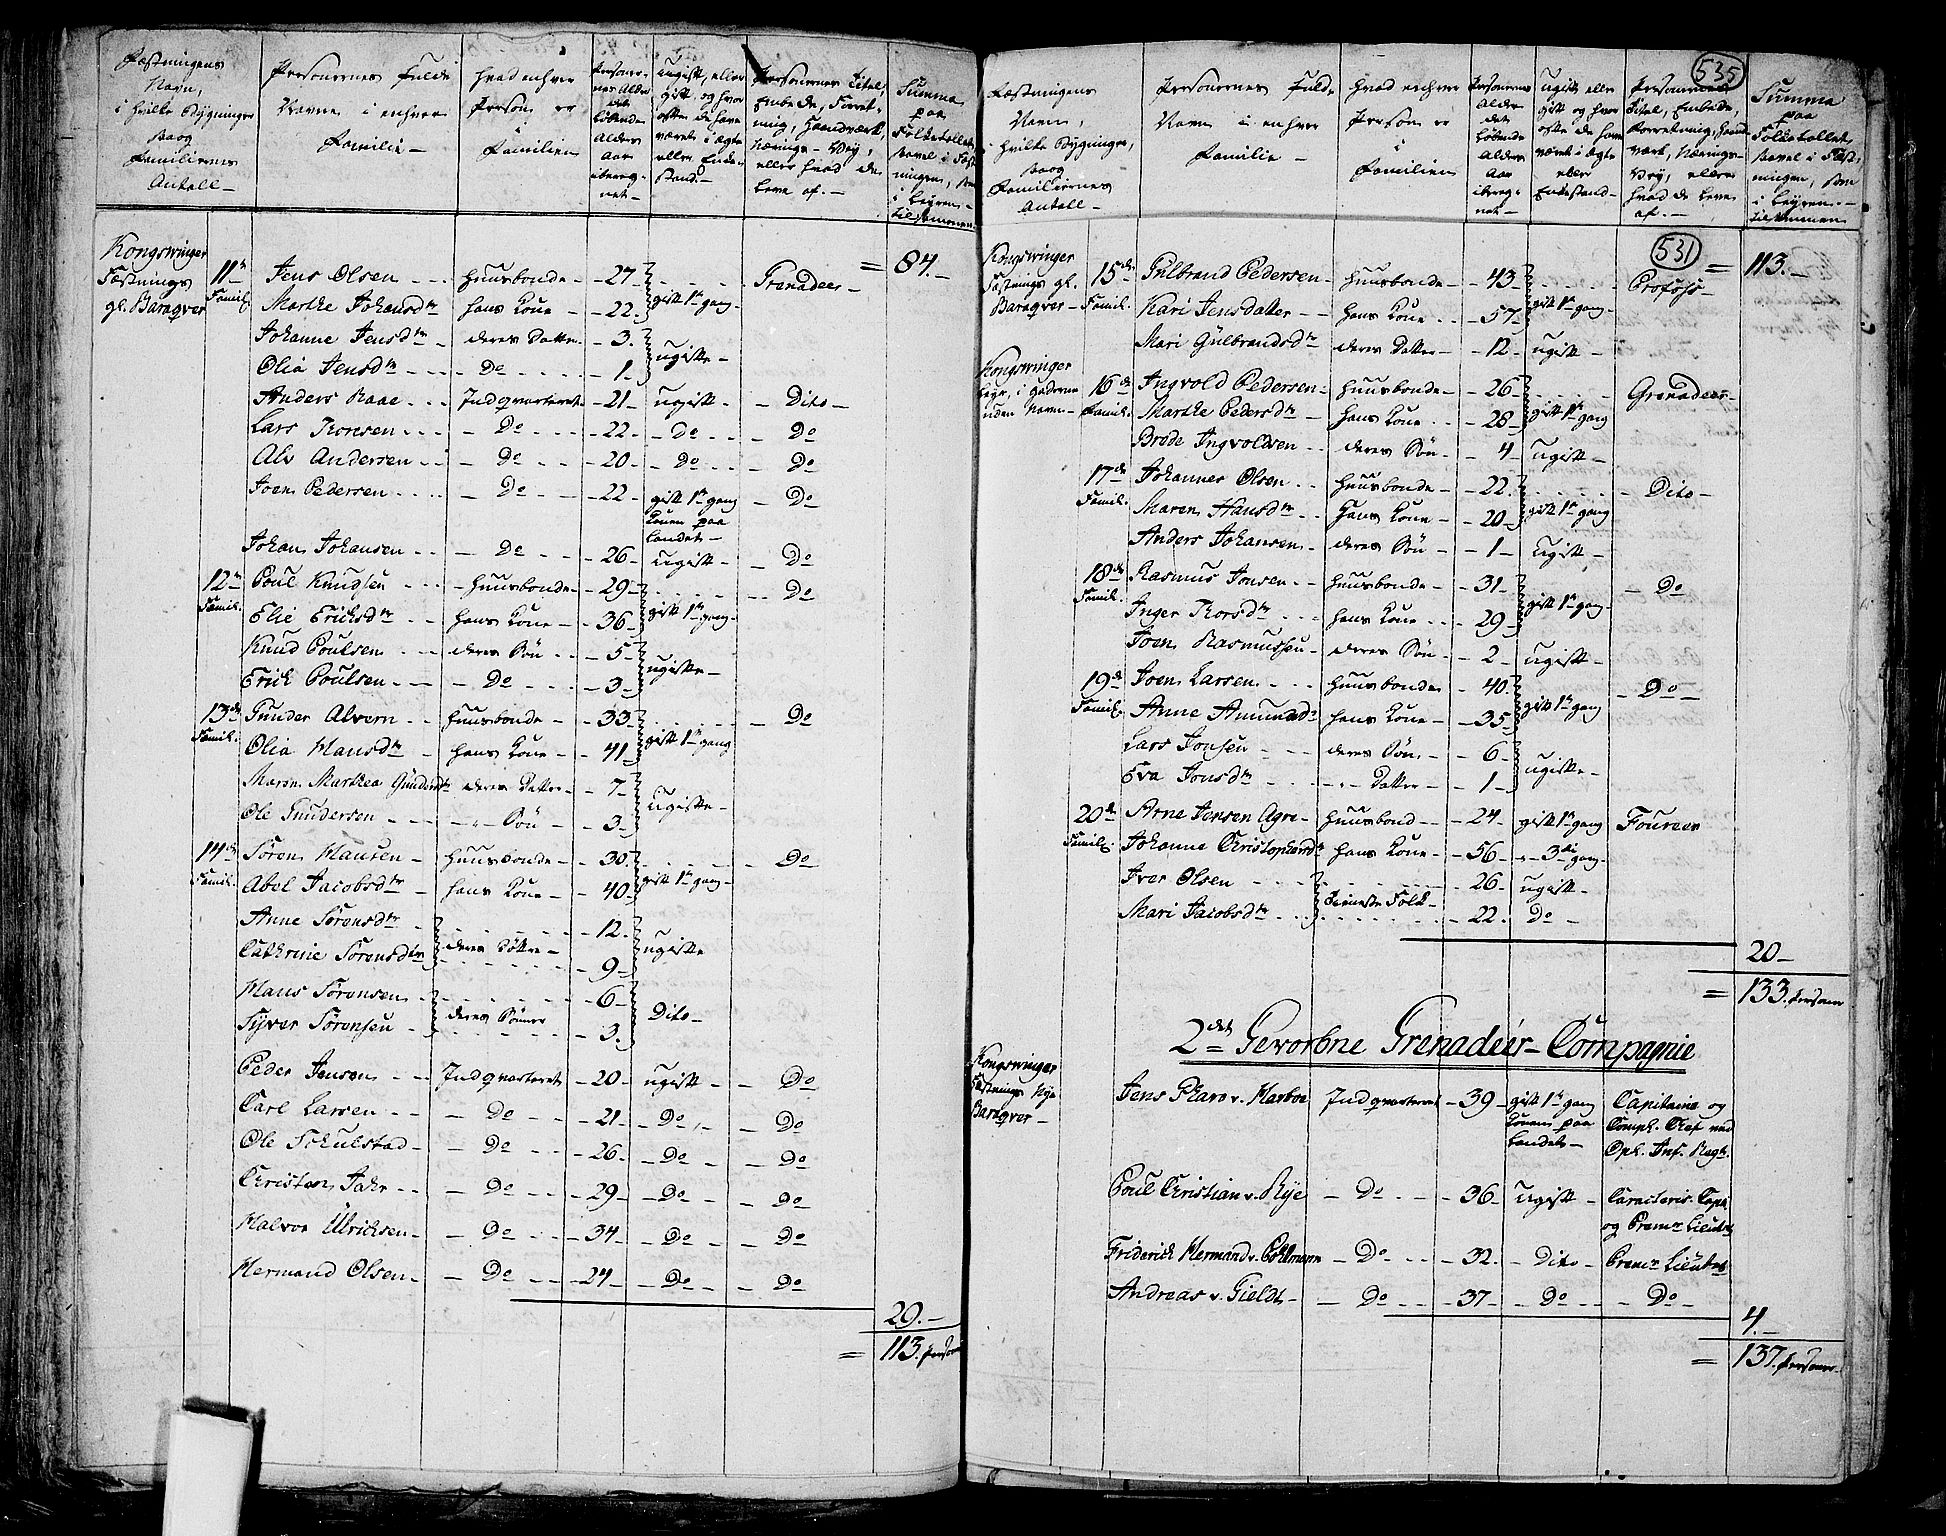 Fæstningens
Navn,
i hvilke Bygninger
samt
Familiernes
Antall –
Personernes fulde
Navne i enhver
Familie –
Hvad enhver
Person er
i
Familien
Personer-
nes Alder
det
løbende
Alders
Aar
ibereg-
net –
Ugift, eller
gift, og hvor
ofte de have
været i ægte
eller Enke-
stand. –
Personernes Titel,
Embede, Forret-
ning, Haandværk,
Nærings-Vey,
eller hvad de
leve af. –
Summa
paa
Folketallet,
saavel i Fæst-
ningen, som
i Leyren-
tilsammen.
Kongswinger
Fæstnings
gl. Baraqver
= 84. –
11te Famil. Jens Olsen - - - Huusbonde – 27 - - - - Grenadeer –
Marthe Johansdtr hans Kone – 22. gift 1te gang –
Johanne Jensdtr – deres Datter – 3.
Olia Jensdtr - - - - Do - - - - – 1 – ugifte –
Anders Aaae - - - Indqvarteret – 21 – ugift – – Dito –
Lars Thorsen - - - – Do - - - – 22 – – Do - - – Do
Alv Andersen - - – Do - - - – 20 – – Do - - – Do
Joen Pedersen - - - – Do - - – 22 – gift 1te gang – Do
Konen paa
Landet –
Johan Johansen - - – Do - - - 26 – Ugift – – Do
12te Famil. Poul Knudsen - - - – Huusbonde – 29 – - - - - – Do
Elie Ericksdtr - - hans Kone – – 36 – gift 1te gang –
Knud Poulsen - - - deres Søn - – 5 –
Erick Poulsen – – Do - - - - 3 – ugifte –
13de Famil. Gunder Alvern - - Huusbonde – – 33 - - - - – Do
Olia Hansdtr – hans Kone – – 41 – gift 1te gang
Maren Marthea Gundersdtr deres Datter – – 7 –
Ole Gundersen - - - – „ – Søn - - 3 – Ugifte –
14de Famil. Søren Hansen – Huusbonde – – 30. - - - - – Do
Abel Jacobsdtr – hans Kone – – 40 – gift 1te gang –
Anne Sørensdtr - - - - - - 12.
Cathrine Sørensdtr deres Døttre – 9 – ugifte
Hans Sørensen - - - - - 6 –
Syver Sørensen - deres Sønner - - 3. Dito –
Peder Jensen - - - Indqvarteret – 20 – ugift – – Do
Carl Larsen - - – Do - - – 21 – – Do – – Do
Ole Schulstad – – Do - - – 26 – – Do – – Do
Christian Fahr - - – Do - - – 29 – – Do – – Do
Halvor Ulricksen – – Do - - – 34 – – Do – – Do
Hermand Olsen – – Do - - – 24 – – Do – – Do
29. –
= 113. Personer
535
Fæstningens
Navn,
i hvilke Bygninger,
samt
Familiernes
Antall –
Personernes fulde
Navn i enhver
Familie –
Hvad enhver
Person er
i
Familien
Personernes
Alder
det
løbende
Alders
Aar
ibereg-
net –
Ugift eller
gift og hvor
ofte de have
været i ægte
eller
Enkestand –
Personernes
Titel, Embede
Forretning, Haand-
værk, Nærings-
Vey, eller
hvad de leve
af. –
Summa
paa
Folketallet
saavel i Fæst-
ningen, som
i Leyren. –
tilsammen
531
Kongswinger
Fæstnings gl.
Baraqver –
= 113. –
15de Famil. Gulbrand Pedersen – Huusbonde – – 43 – - - - - Profoss –
Kari Jensdatter - - hans Kone - - – 57 – gift 1te gang –
Mari Gulbrandsdtr deres Datter – – 12 – ugift –
Kongswinger
Leyr, i Gaderne
uden Navn –
16de Famil. Ingvold Pedersen – Huusbonde – – 26 – - - - - Grenadeer –
Marthe Pedersdtr – hans Kone - - – 28 – gift 1te gang
Brede Ingvoldsen - - deres Søn – – 4 ugift –
17de Famil. Johannes Olsen - - Huusbonde – – 22. - - - - – Dito –
Maren Hansdtr - - hans Kone – – 20 – gift 1te gang
Anders Johansen – deres Søn – – 1 – Ugift –
18de Famil. Rasmus Jonsen - - Huusbonde – – 31. - - - - – Do
Inger Thorsdtr - - - hans Kone - - – 29 – gift 1te gang –
Joen Rasmussen – deres Søn – – 2 – ugift –
19de Famil. Joen Larsen - - - Huusbonde – 40. – Do –
Anne Amundsdtr hans Kone – – 35 – gift 1te gang
Lars Jonsen - - - deres Søn – – 6 –
Eva Jonsdtr - - - – „ – Datter – – 1 – ugifte –
20de Famil. Arne Jensen Agre – Huusbond – – – 24 – gift 1te gang Foureer
Johanne Christophersdtr hans Kone – – 56 – „ – 3die gang –
Iver Olsen - - - - - - - 26 – ugift –
Mari Jacobsdtr - - - tieneste Folk - - – 22. Do –
20 –
= 133. Personer
2det Gevorbne Grenadeer-Compagnie
Kongswinger
Fæstnings Nye
Baraqver –
Jens Pharo v. Harboe Indqvarteret – 39 – gift 1te gang Capitaine og
Konen paa Comp. Chef ved
Landet – Opl. Inf. Regt.
Poul Christian v. Rye – Do - - - – 36 – Ugift – Caracteris. Capt.
og Premr Lieutnt
Friderick Hermand v. Pohlmann – Do - - – 32. – Dito – Premr Lieutnt
Andreas v. Gieldt – – Do - - – 37 – – Do - – Do –
4. –
= 137. Personer –